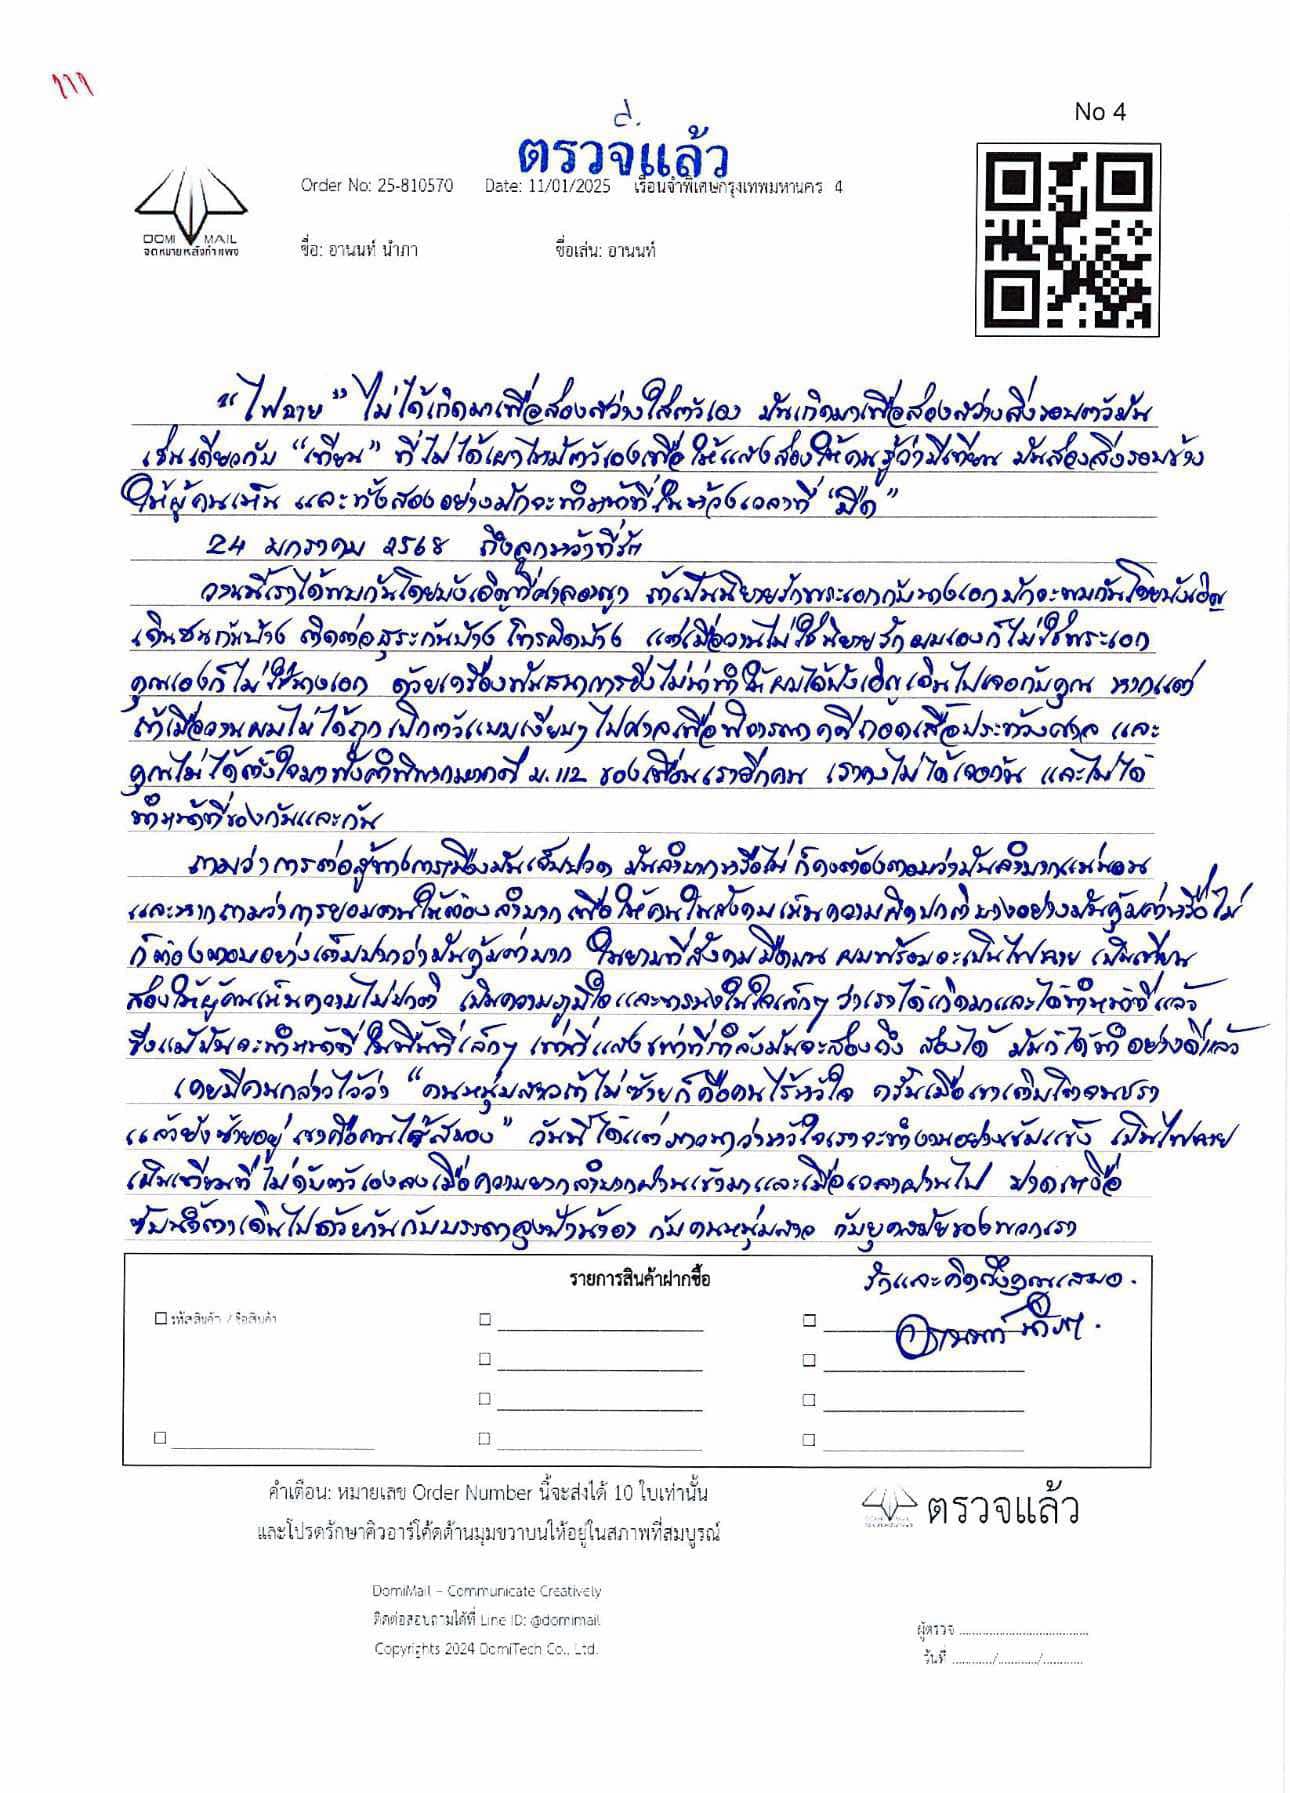 No 4
ตรวจแล้ว
Order No: 25-810570 Date: 11/01/2025 เรือนจำพิเศษกรุงเทพมหานคร 4
DOMI MAIL
จดหมายหลังกำแพง
ชื่อ: อานนท์ นำภา ชื่อเล่น: อานนท์
“ไฟฉาย” ไม่ได้เกิดมาเพื่อส่องสว่างใส่ตัวเอง มันเกิดมาเพื่อส่องสว่างสิ่งรอบตัวมัน
เช่นเดียวกับ “เทียน” ที่ไม่ได้เผาไหม้ตัวเองเพื่อให้แสงส่องให้คนรู้ว่ามีเทียน มันส่องสิ่งรอบข้าง
ให้ผู้คนเห็น และทั้งสองอย่างมักจะทำหน้าที่ในห้วงเวลาที่ “มืด”
24 มกราคม 2568 ถึงลูกหว้าที่รัก
วานนี้เราได้พบกันโดยบังเอิญที่ศาลอาญา ถ้าเป็นนิยายรักพระเอกกับนางเอกมักจะพบกันโดยบังเอิญ
เดินชนกันบ้าง ติดต่อธุระกันบ้าง โทรผิดบ้าง แต่เมื่อวานไม่ใช่นิยายรัก ผมเองก็ไม่ใช่พระเอก
คุณเองก็ไม่ใช่นางเอก ด้วยเครื่องพันธนาการยิ่งไม่น่าทำให้ผมได้บังเอิญเดินไปเจอกับคุณ หากแต่
ถ้าเมื่อวานผมไม่ได้ถูกเบิกตัวแบบเงียบๆ ไปศาลเพื่อพิจารณาคดีถอดเสื้อประท้วงศาล และ
คุณไม่ได้ตั้งใจมาฟังคำพิพากษาคดี ม.112 ของเพื่อนเราอีกคน เราคงไม่ได้เจอกัน และไม่ได้
ทำหน้าที่ของกันและกัน
ถามว่าการต่อสู้ทางการเมืองมันเจ็บปวด มันลำบากหรือไม่ ก็คงต้องตอบว่ามันลำบากแน่นอน
และหากถามว่าการยอมตนให้ต้องลำบาก เพื่อให้คนในสังคมเห็นความผิดปกติบางอย่างมันคุ้มค่าหรือไม่
ก็ต้องตอบอย่างเต็มปากว่ามันคุ้มค่ามาก ในยามที่สังคมมืดมน ผมพร้อมจะเป็นไฟฉาย เป็นเทียน
ส่องให้ผู้คนเห็นความไม่ปกติ เป็นความภูมิใจและทระนงในใจเล็กๆ ว่าเราได้เกิดมาและได้ทำหน้าที่แล้ว
ซึ่งแม้มันจะทำหน้าที่ในพื้นที่เล็กๆ เท่าที่แสงเท่าที่กำลังมันจะส่องถึง ส่องได้ มันก็ได้ทำอย่างดีแล้ว
เคยมีคนกล่าวไว้ว่า “คนหนุ่มสาวถ้าไม่ซ้ายก็คือคนไร้หัวใจ ครั้นเมื่อเขาเติบโตจนชรา
แล้วยังซ้ายอยู่ เขาคือคนไร้สมอง” วันนี้ได้แต่ภาวนาว่าหัวใจเราจะทำงานอย่างเข้มแข็ง เป็นไฟฉาย
เป็นเทียนที่ไม่ดับตัวเองลงเมื่อความยากลำบากผ่านเข้ามาและเมื่อเวลาผ่านไป ปาดเหงื่อ
ซับน้ำตาเดินไปด้วยกันกับบรรดาลุงป้าน้าอา กับคนหนุ่มสาว กับยุคสมัยของพวกเรา
รักและคิดถึงคุณเสมอ.
อานนท์ นำภา.
รายการสินค้าฝากซื้อ
รหัสสินค้า / ชื่อสินค้า
คำเตือน: หมายเลข Order Number นี้จะส่งได้ 10 ใบเท่านั้น
และโปรดรักษาคิวอาร์โค้ดด้านมุมขวาบนให้อยู่ในสภาพที่สมบูรณ์
ตรวจแล้ว
DomiMail – Communicate Creatively
ติดต่อสอบถามได้ที่ Line ID: @domimail
Copyrights 2024 DomiTech Co., Ltd.
ผู้ตรวจ ....................................
วันที่ .........../.........../...........